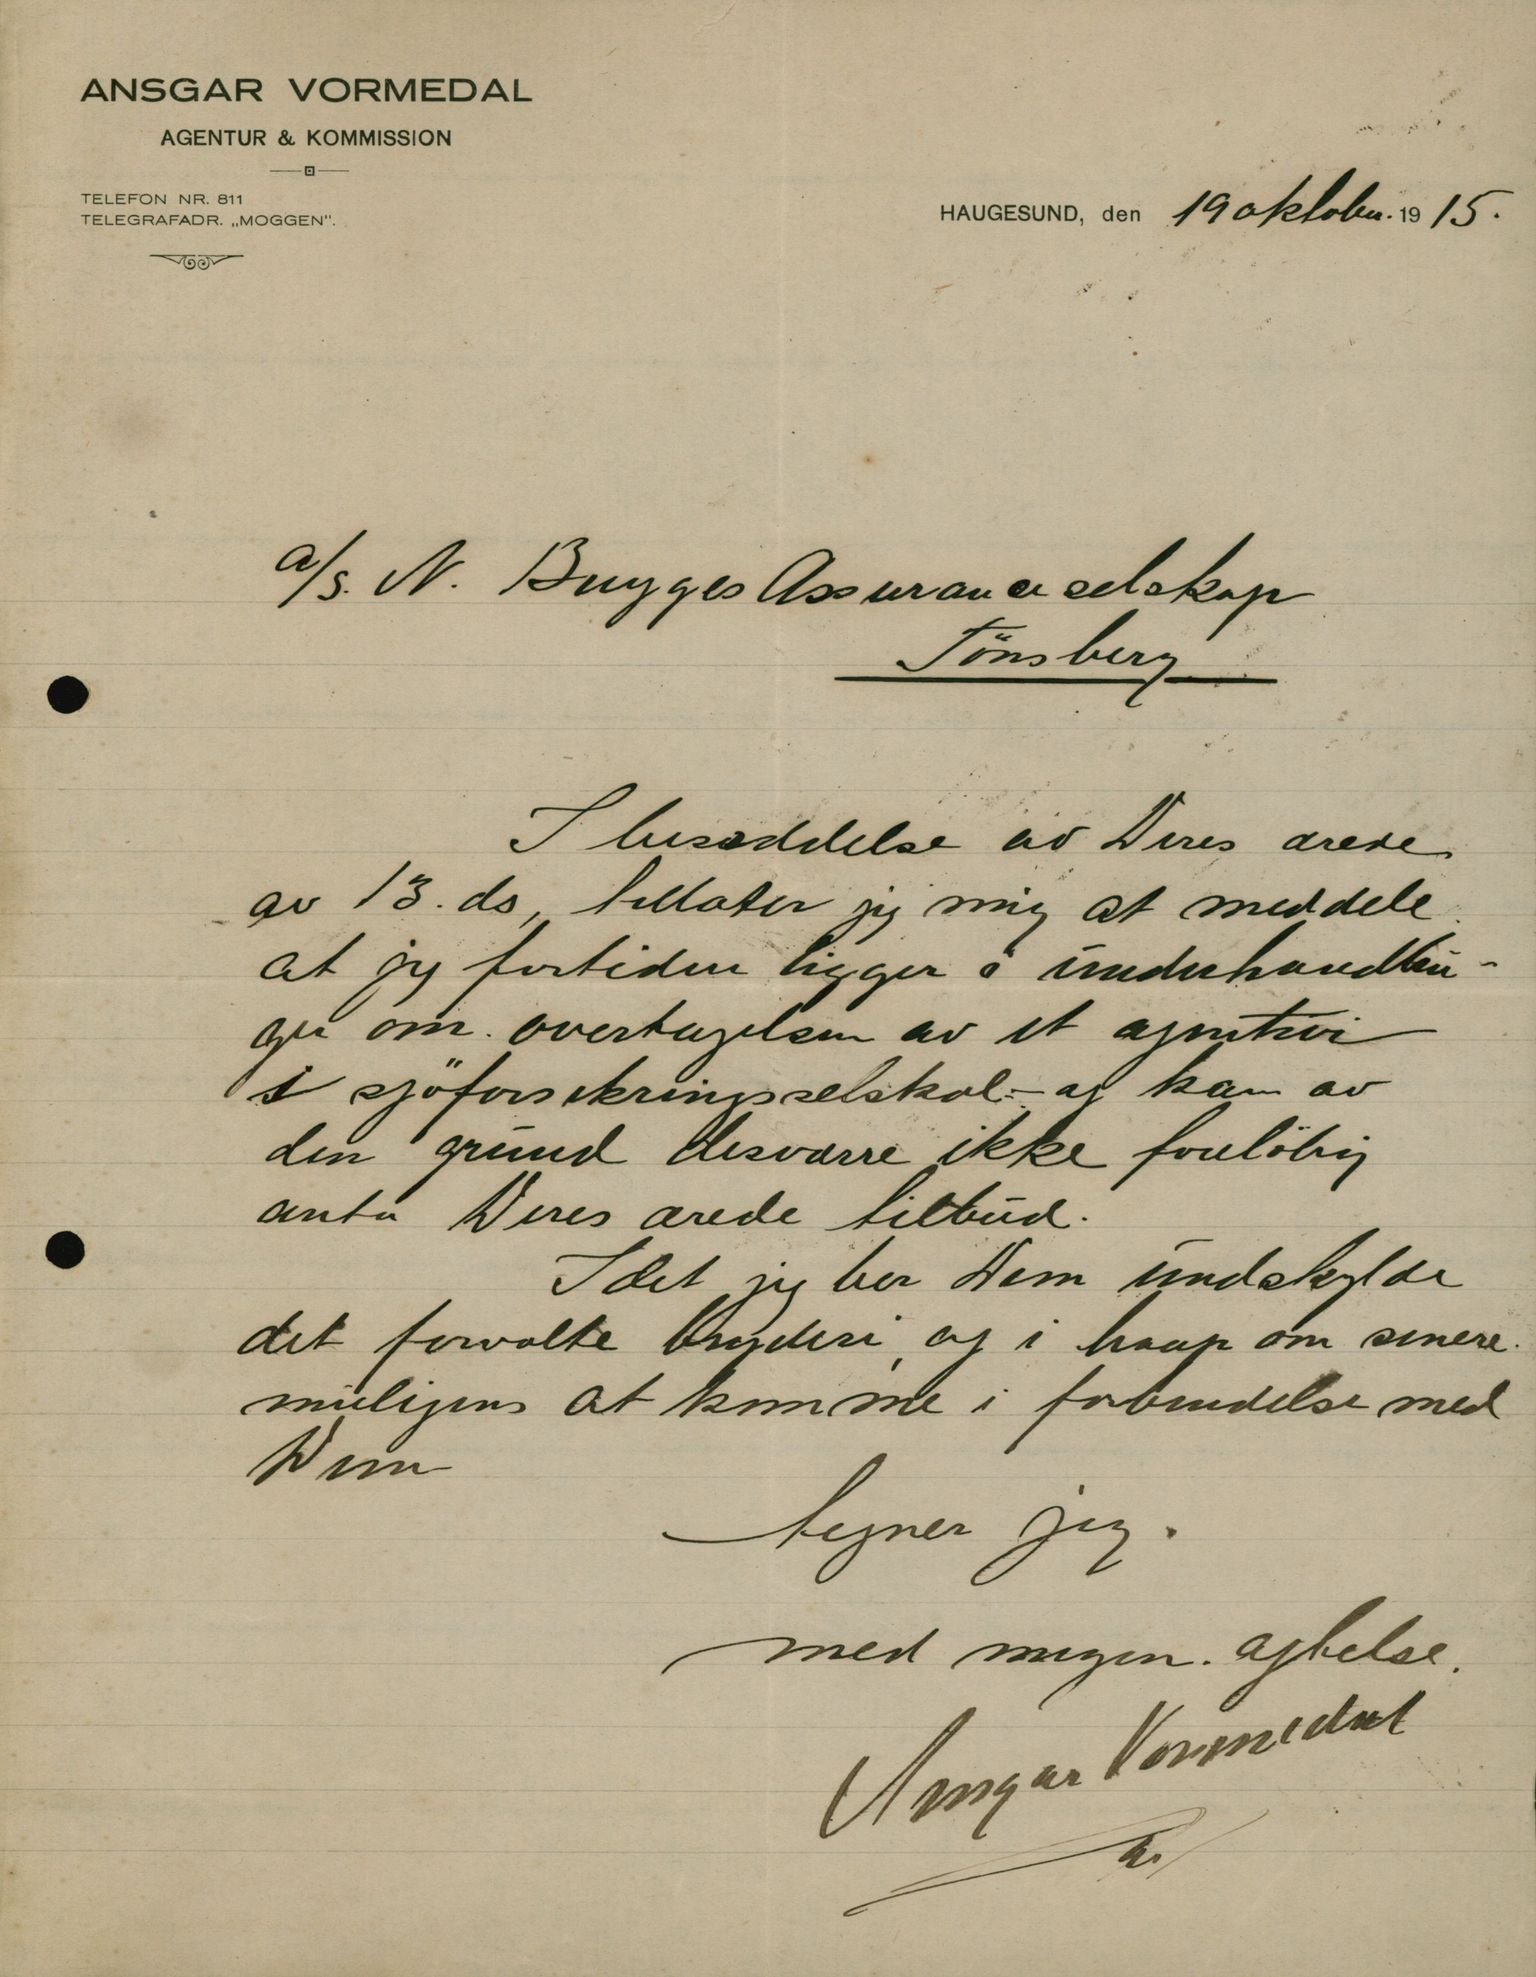 ANSGAR VORMEDAL
AGENTUR & KOMMISSION
TELEFON NR. 811
TELEGRAFADR. „MOGGEN".
HAUGESUND, den 19 oktober. 1915.
a/s. N. Bugges Assuranceselskap
Tönsberg
I besæddelse av Deres ærede
av 13. ds, tillater jeg mig at meddele
at jeg fortiden ligger i underhandlin-
ger om overtagelsen av et agentur
i sjöforsikringsselskal - og kan av
den grund desværre ikke foreløbig
anta Deres ærede tilbud.
Idet jeg ber Dem undskylde
det forvolte bryderi, og i haap om senere
muligens at komme i forbindelse med
Dem
tegner jeg.
med megen agtelse.
Ansgar Vormedal